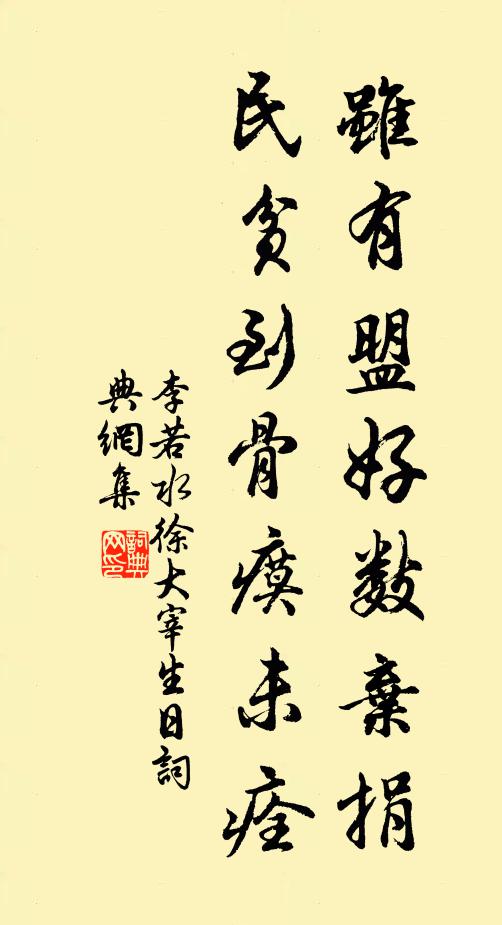 雖有盟好數棄捐
民貧到骨瘼未痊
李若水徐大宰生日詞
典網集
詞典网印